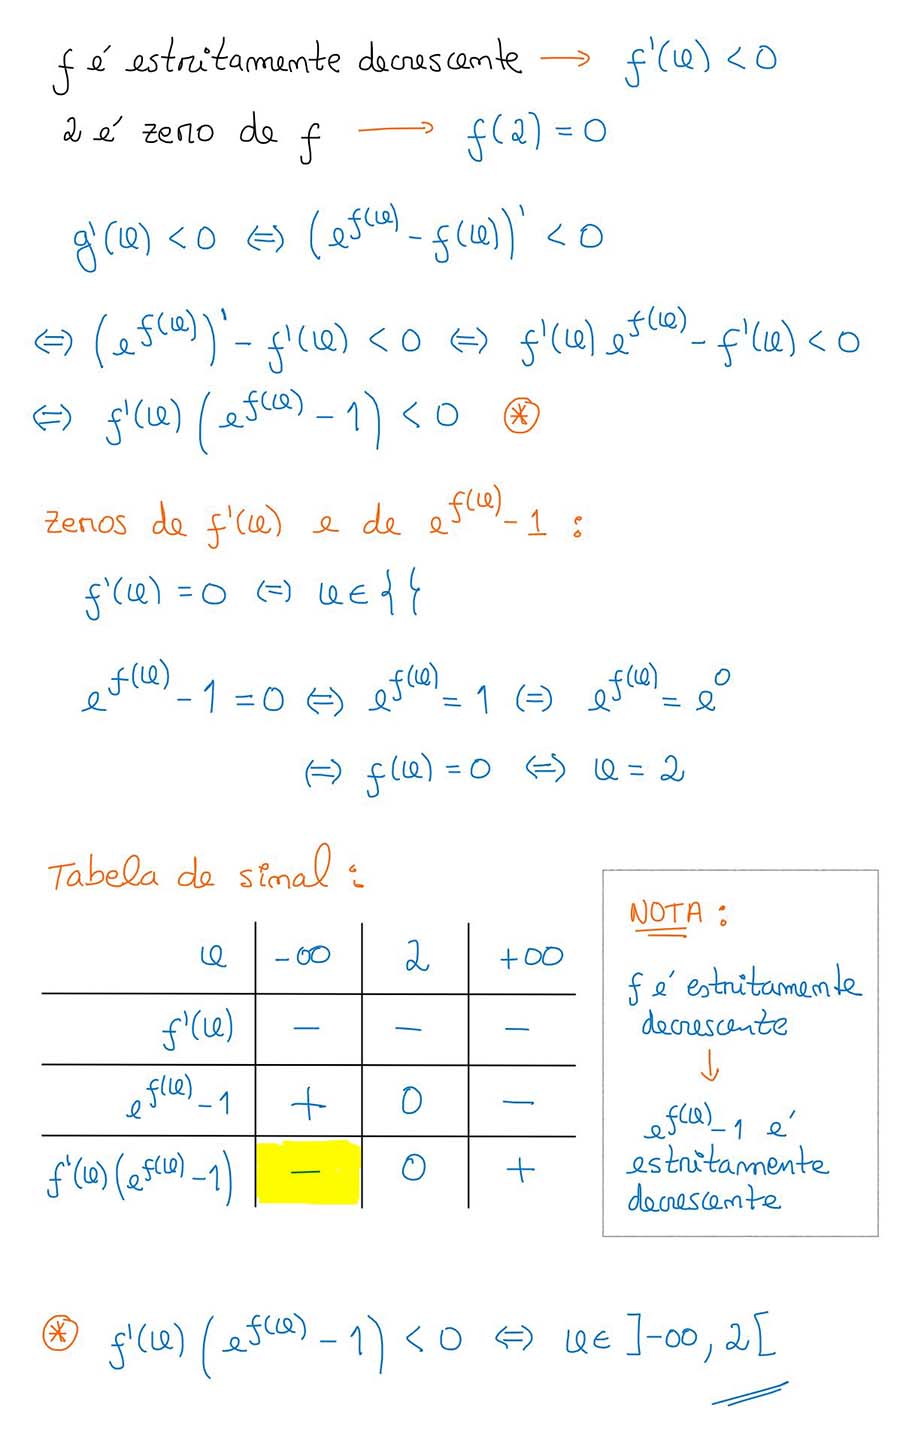 f é estritamente decrescente → f'(x) < 0
2 é zero de f → f(2) = 0
g'(x) < 0 ⇔ (e^f(x) - f(x))' < 0
⇔ (e^f(x))' - f'(x) < 0 ⇔ f'(x) e^f(x) - f'(x) < 0
⇔ f'(x) (e^f(x) - 1) < 0 ⊛
zeros de f'(x) e de e^f(x) - 1 :
f'(x) = 0 ⇔ x ∈ { }
e^f(x) - 1 = 0 ⇔ e^f(x) = 1 ⇔ e^f(x) = e^0
⇔ f(x) = 0 ⇔ x = 2
Tabela de sinal :
x -∞ 2 +∞
f'(x) - - -
e^f(x) - 1 + 0 -
f'(x) (e^f(x) - 1) - 0 +
NOTA :
f é estritamente
decrescente
↓
e^f(x) - 1 é
estritamente
decrescente
⊛ f'(x) (e^f(x) - 1) < 0 ⇔ x ∈ ]-∞, 2[